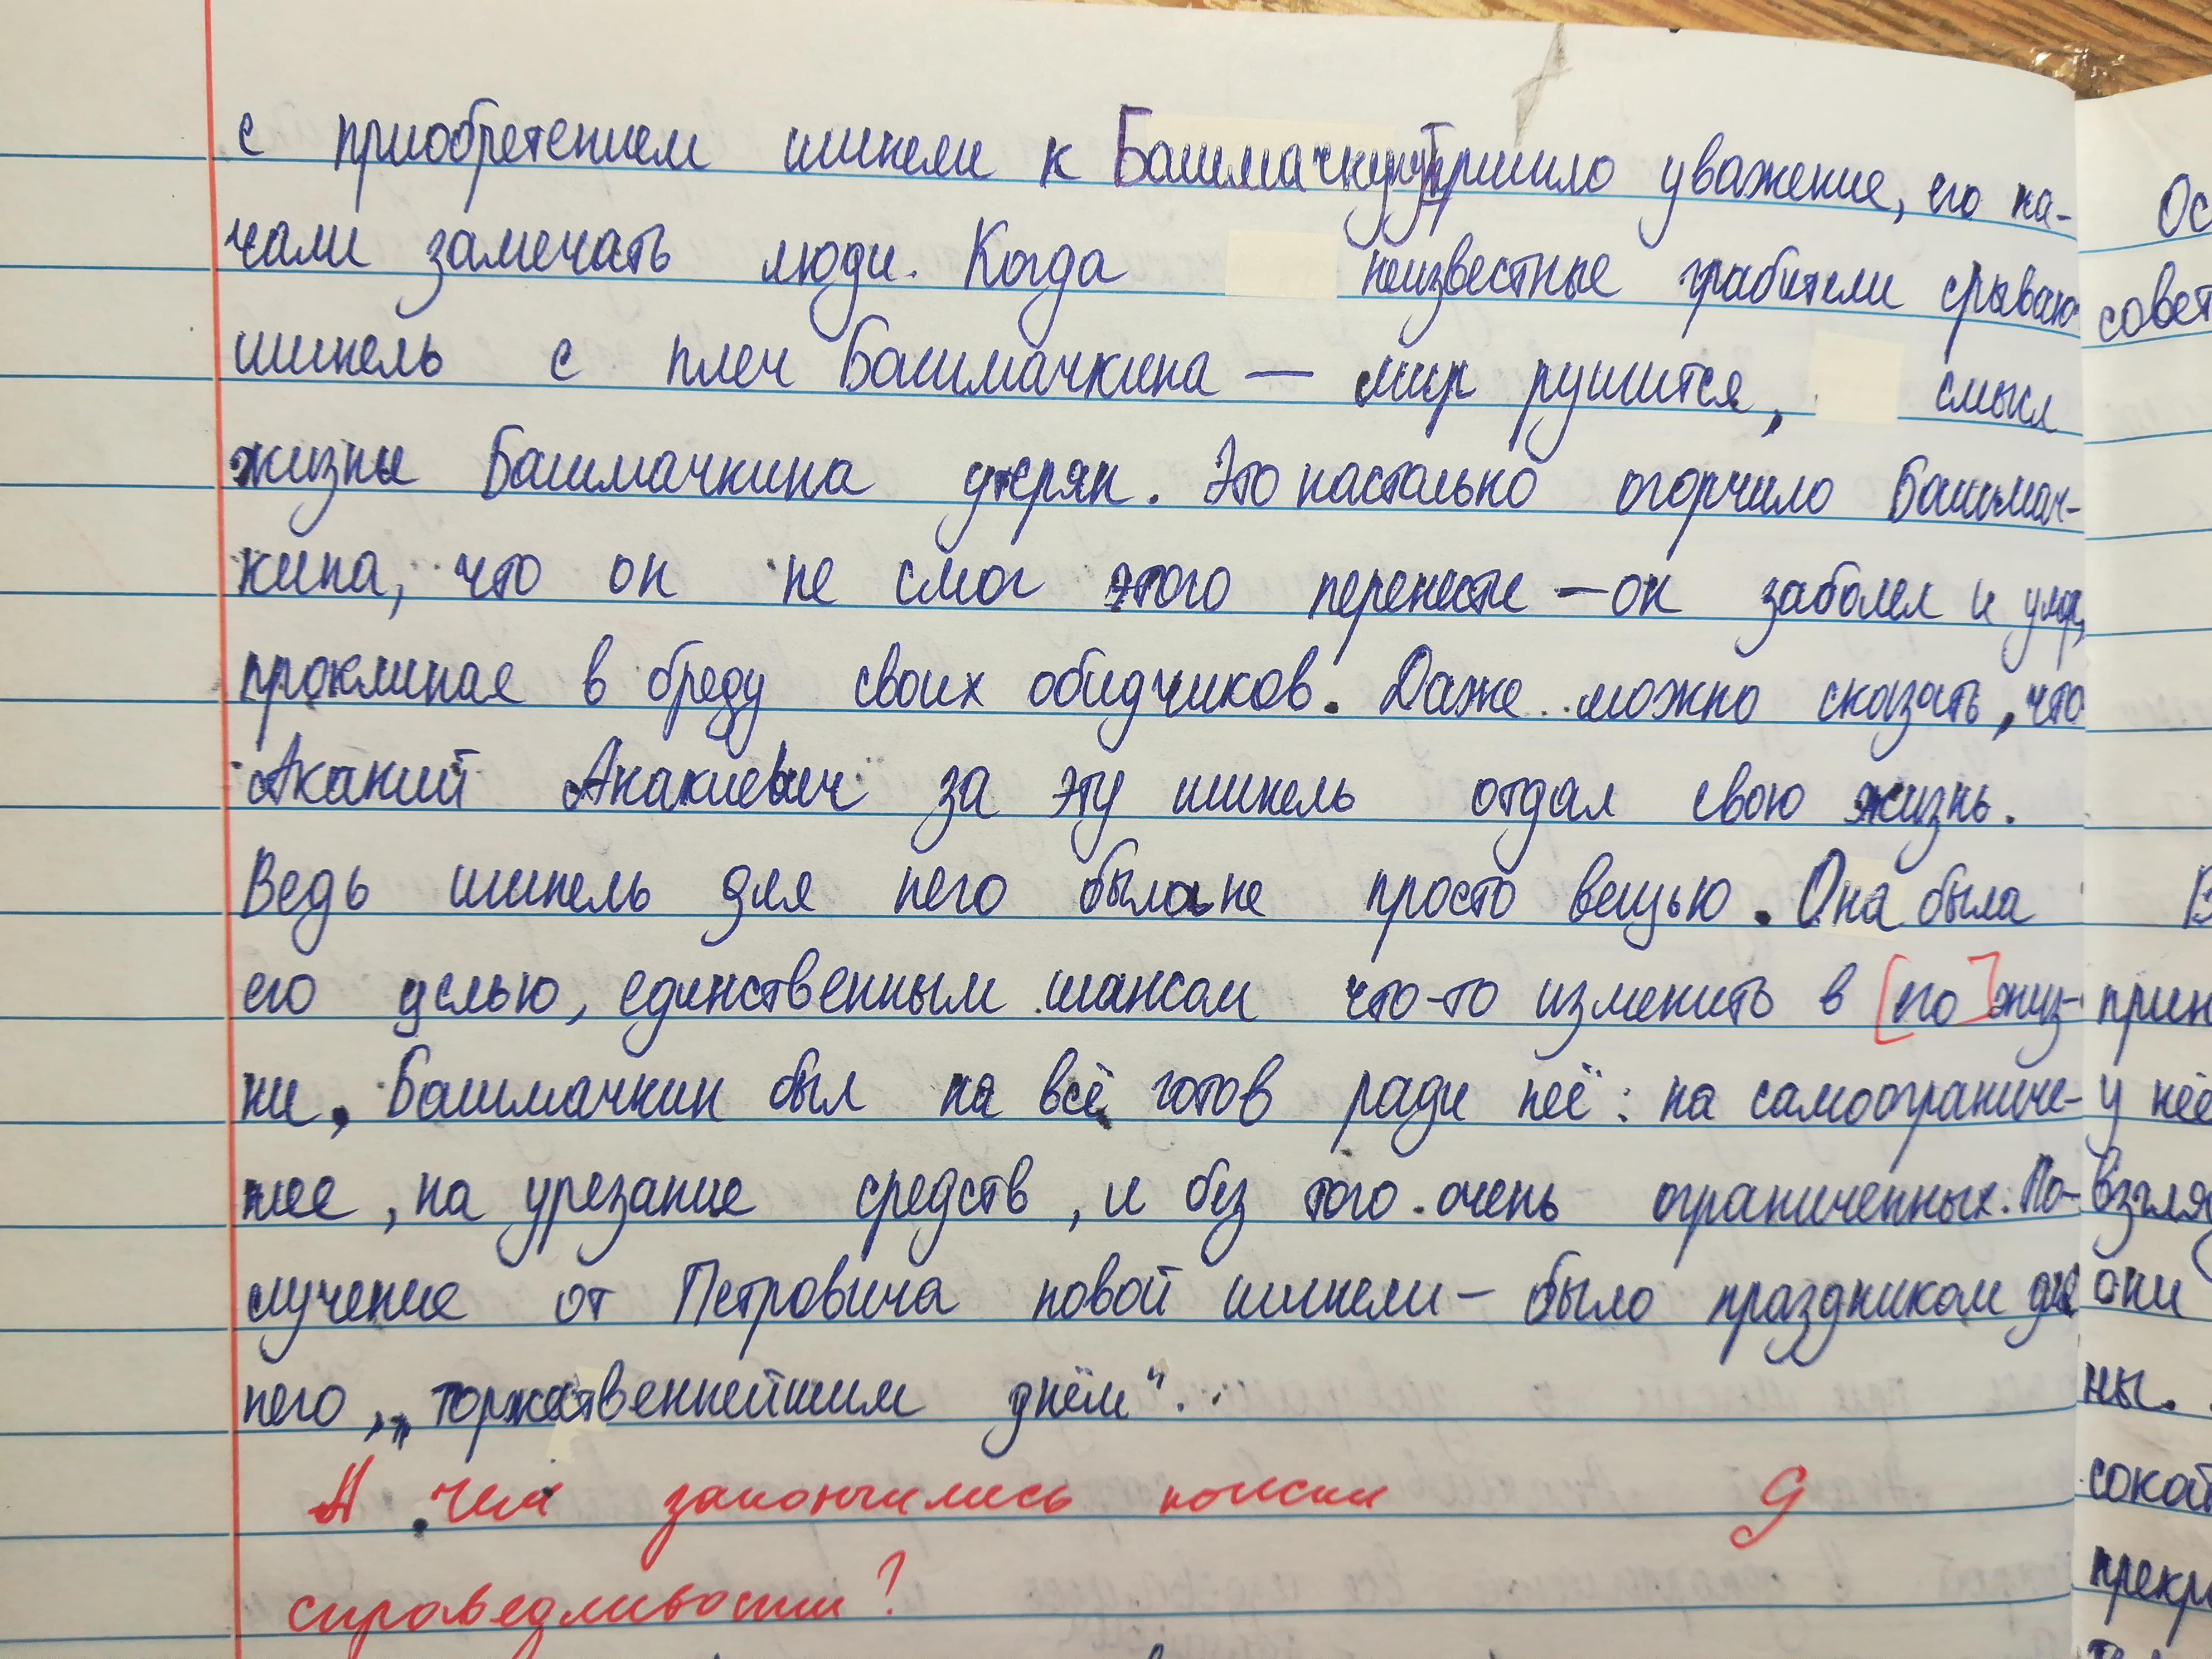 с приобретением шинели к Башмачкину пришло уважение, его на-
чали замечать люди. Когда неизвестные грабители срываю
шинель с плеч Башмачкина — мир рушится, смысл
жизни Башмачкина утерян. Это настолько огорчило Башмач-
кина, что он не смог этого перенести — он заболел и умер,
проклиная в бреду своих обидчиков. Даже можно сказать, что
Акакий Акакиевич за эту шинель отдал свою жизнь.
Ведь шинель для него была не просто вещью. Она была
его целью, единственным шансом что-то изменить в [его] жиз-
ни. Башмачкин был на всё готов ради неё: на самоограниче-
ние, на урезание средств, и без того очень ограниченных. По-
лучение от Петровича новой шинели — было праздником для
него, „торжественнейшим днём“.
А чем закончились поиски 9
справедливости?
Ос
совет
В
прин
у неё
взгля
они
ны.
сокой
прекр